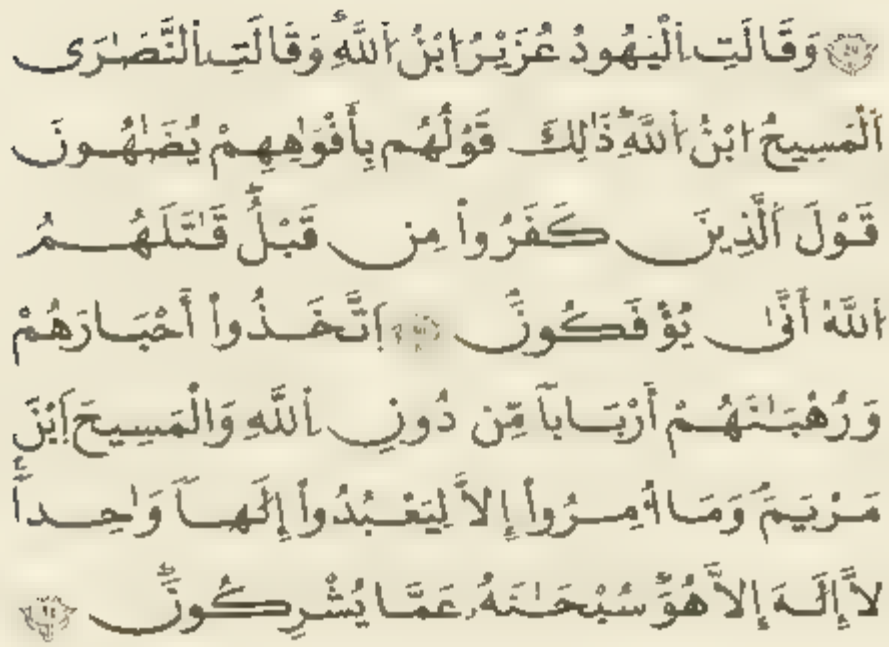 وَقَالَتِ اِ۬لْيَهُودُ عُزَيْرُ اُ۪بْنُ اُ۬للَّهِۖ وَقَالَتِ اِ۬لنَّصَٰرَى
اَ۬لْمَسِيحُ اُ۪بْنُ اُ۬للَّهِۖ ذَٰلِكَ قَوْلُهُم بِأَفْوَٰهِهِمْ يُضَٰهُونَ
قَوْلَ اَ۬لَّذِينَ كَفَرُواْ مِن قَبْلُۖ قَٰتَلَهُمُ
اُ۬للَّهُ أَنَّىٰ يُؤْفَكُونَۖ اَ۪تَّخَذُواْ أَحْبَارَهُمْ
وَرُهْبَٰنَهُمْ أَرْبَاباٗ مِّن دُونِ اِ۬للَّهِ وَالْمَسِيحَ اَ۪بْنَ
مَرْيَمَ وَمَا أُمِرُواْ إِلَّا لِيَعْبُدُواْ إِلَٰهاٗ وَٰحِداٗۖ
لَّا إِلَٰهَ إِلَّا هُوَۖ سُبْحَٰنَهُۥ عَمَّا يُشْرِكُونَۖ